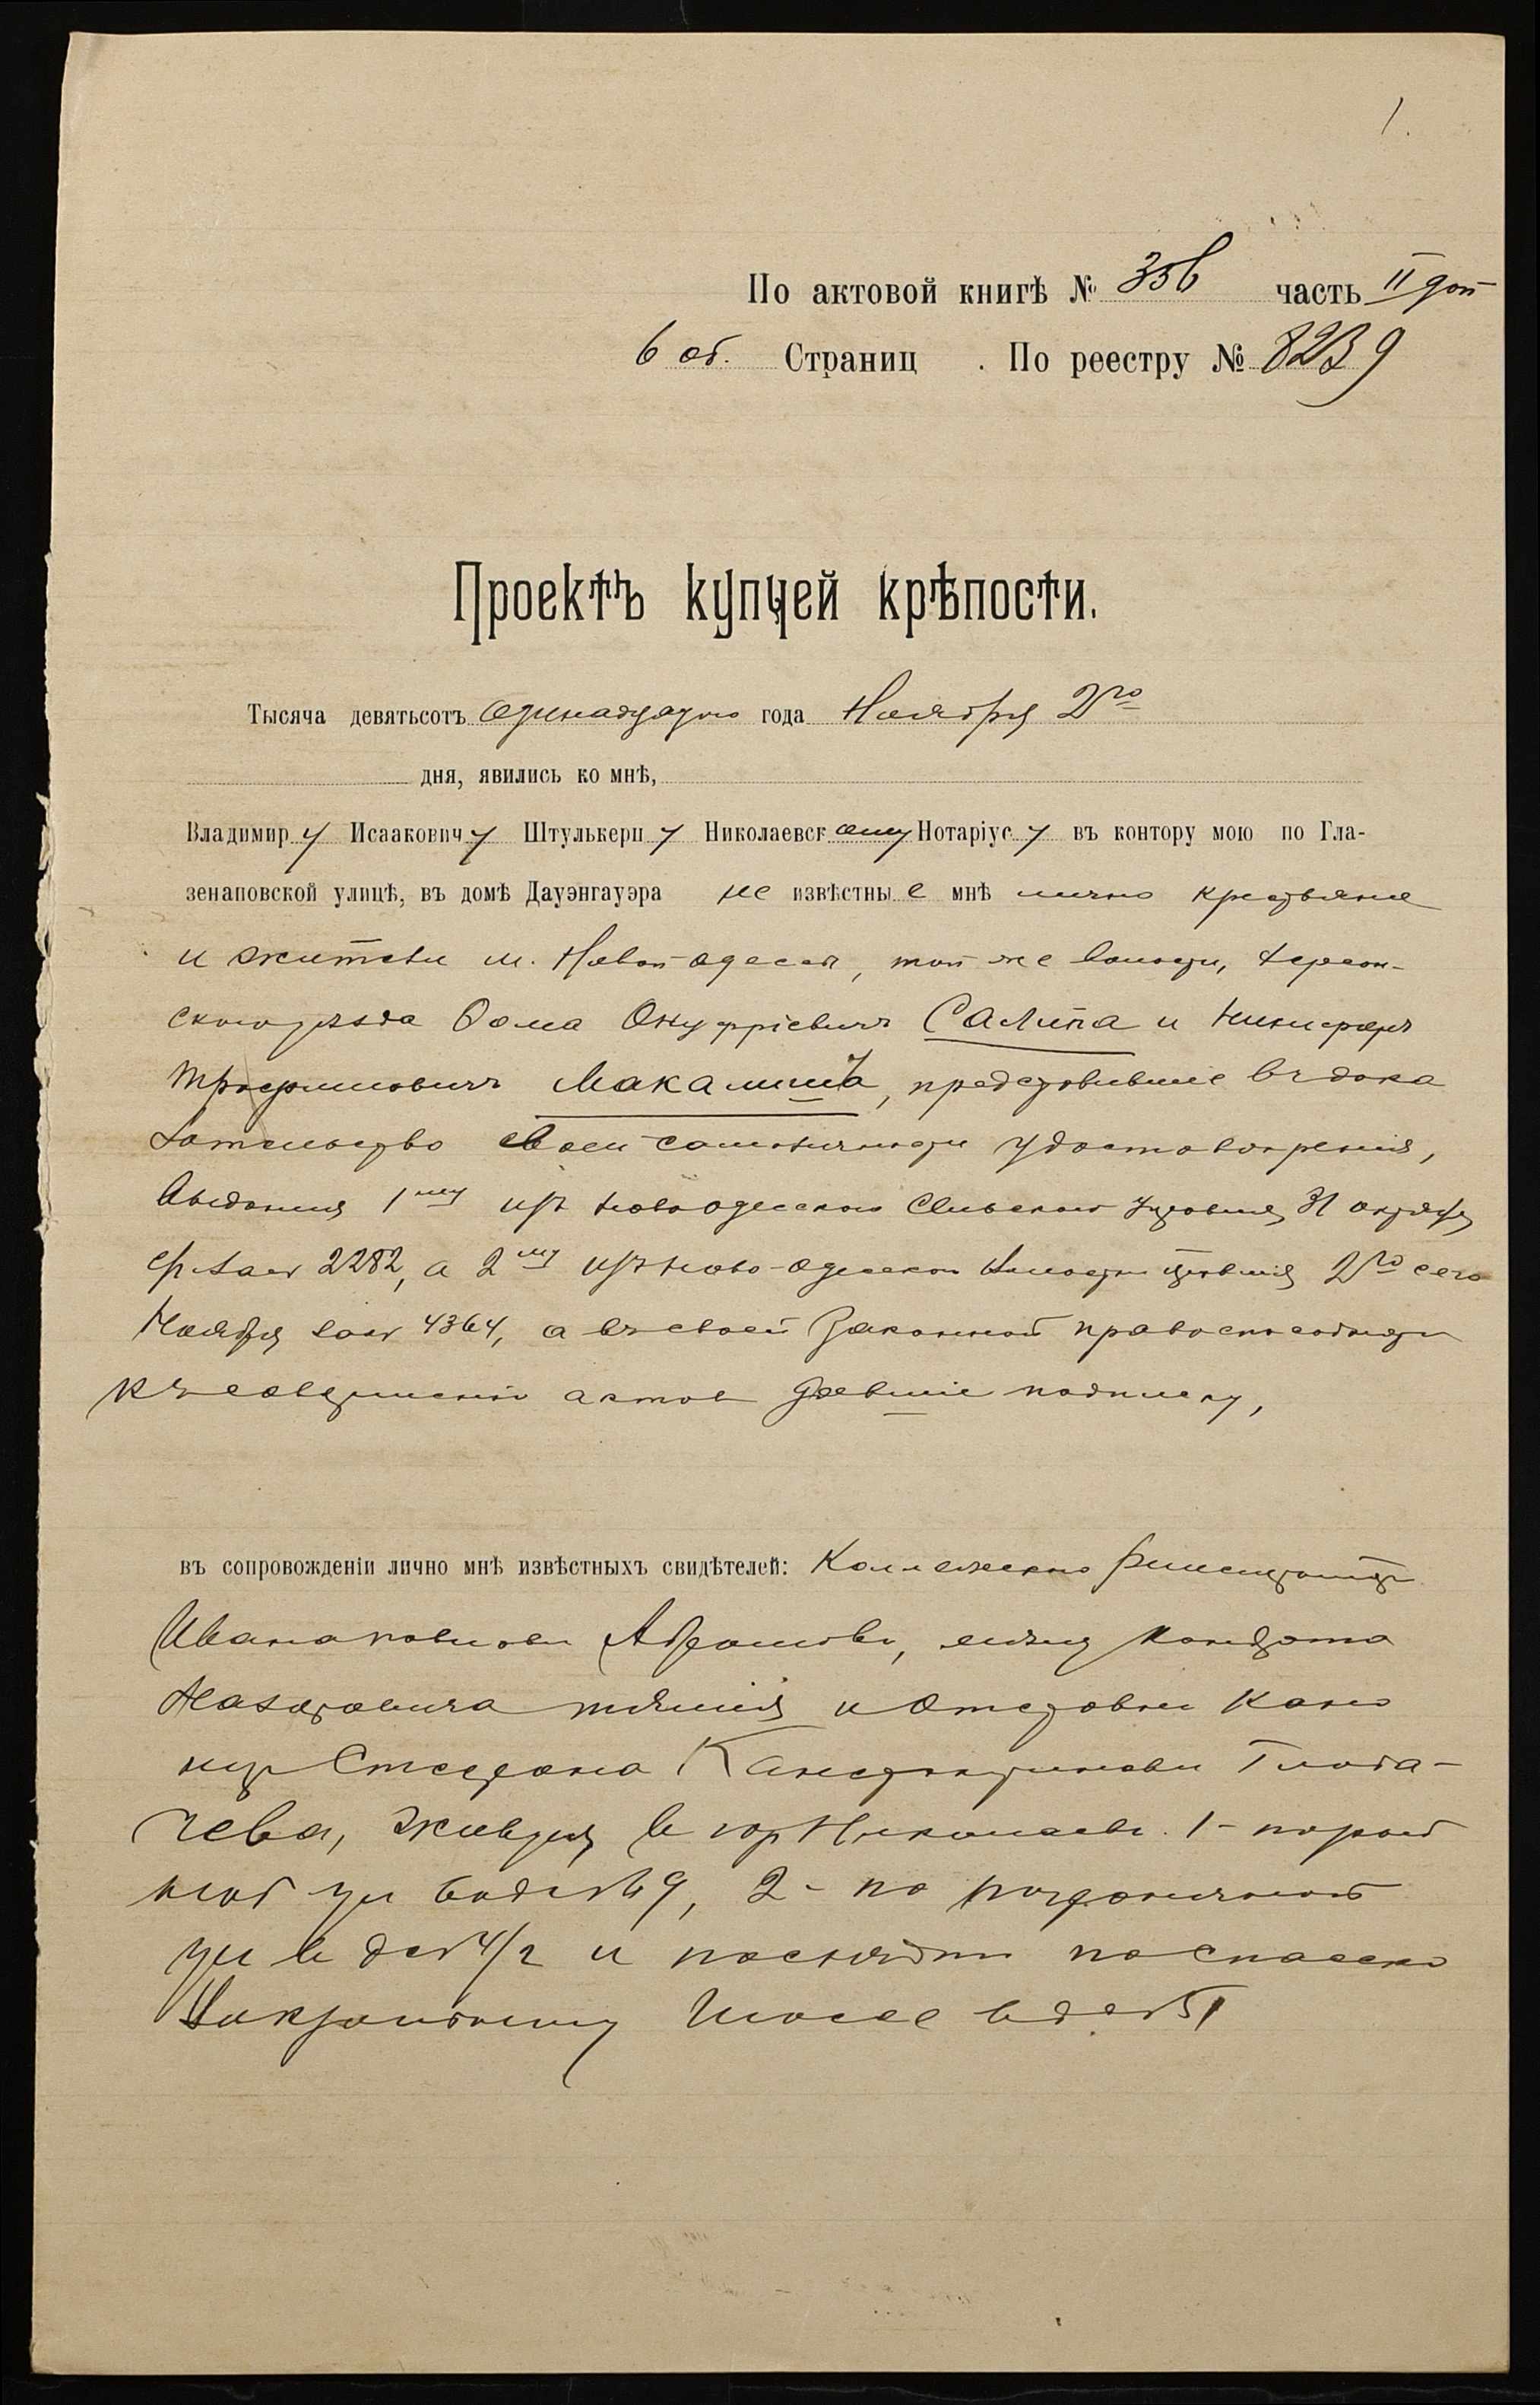 1.
По актовой книгѣ № 356 часть II доп
6 об. Страниц . По реестру № 8239
Проектъ купчей крѣпости.
Тысяча девятьсотъ одинадцатого года Ноября 2го
дня, явились ко мнѣ,
Владимиру Исааковичу Штулькерцу Николаевскому Нотаріусу въ контору мою по Гла-
зенаповской улицѣ, въ домѣ Дауэнгауэра не извѣстные мнѣ лично крестьяне
и жители м. Новой Одессы, той же волости, Херсон-
скаго уѣзда Фома Онуфріевичъ Салипа и Никифоръ
Трофимовичъ Макалиша, представившіе въ дока
зательство своей самоличности удостоверенія,
выданныя 1му изъ Новоодесскаго Сельскаго Управленія 31 октября
за № 2282, а 2му изъ Ново-Одесскаго Волостного Правленія 2го сего
Ноября за № 4364, а въ своей законной правоспособности
къ совершенію актов давшіе подписку,
въ сопровожденіи лично мнѣ извѣстныхъ свидѣтелей: Коллежскаго Регистратора
Ивана Абрамова, Кондрата
Назаровича и Отставн Кано
нир Степана Константинови Глоба-
чева, живущ в гор Николаеве. 1-
ул в д № 49, 2- по Пограничной
ул в д № 4/2 и последн по Спасско
Шоссе в д № 51